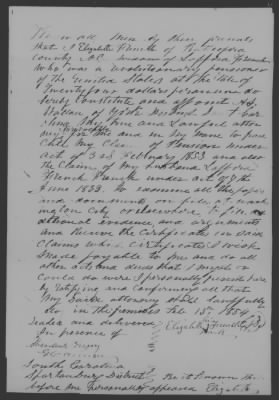 Know all men by these presents
that I Elizabeth French of Rutherford
County N.C. widow of Lafford French
who was a revolutionary pensioner
of the United States at the rate of
Twenty four dollars per annum do
hereby constitute and appoint
my true and Lawful atto
for me and in my name to prose
cute my claim of Pension under
act of 3rd February 1853 and also
the claim of my husband Lafford
French under act of 7th
June 1832. To examine all the papers
and documents on file at Wash
ington City or elsewhere to file a
ditional evidence and arguments
and Receive the Certificate in each
claims which certificates I wish
made payable to me and do all
other acts and deeds that I might or
could do were I personally present here
by ratifying and confirming all that
my said attorney shall lawfully
do in the premises Feb 15th 1854
Sealed and delivered
in presence of
Elizabeth her French
mark
South Carolina
Spartanburg District Be it known that
before me personally appeared Elizabeth